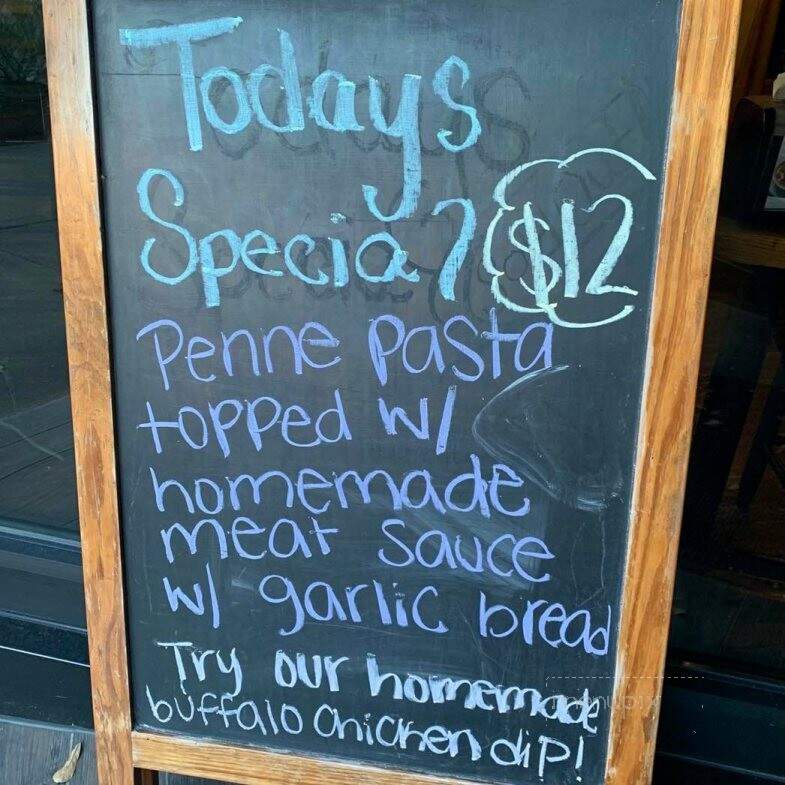 Todays
Special $12
Penne pasta
topped w/
homemade
meat sauce
w/ garlic bread
Try our homemade
buffalo chicken dip!
menupix